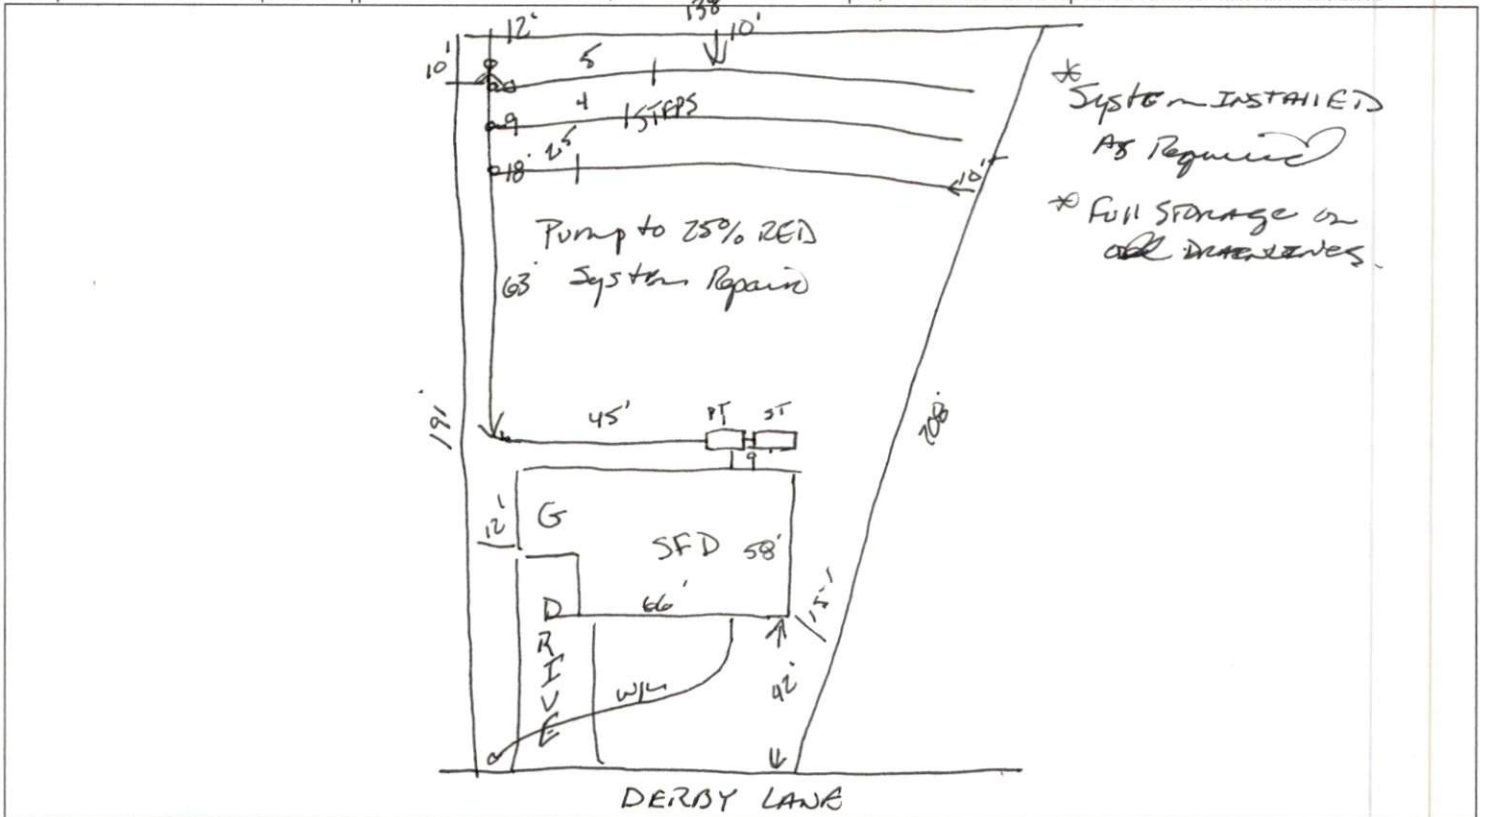 138
12'
10'
10'
5
4
STEPS
9
25
18'
10'+
* System INSTALLED
As Required
* Full STORAGE on
all DRAINLINES.
Pump to 25% RED
System Repair
63'
191'
208'
45'
PT
ST
9'
12'
G
SFD
58'
66'
15'
42'
DRIVE
W/L
DERBY LANE